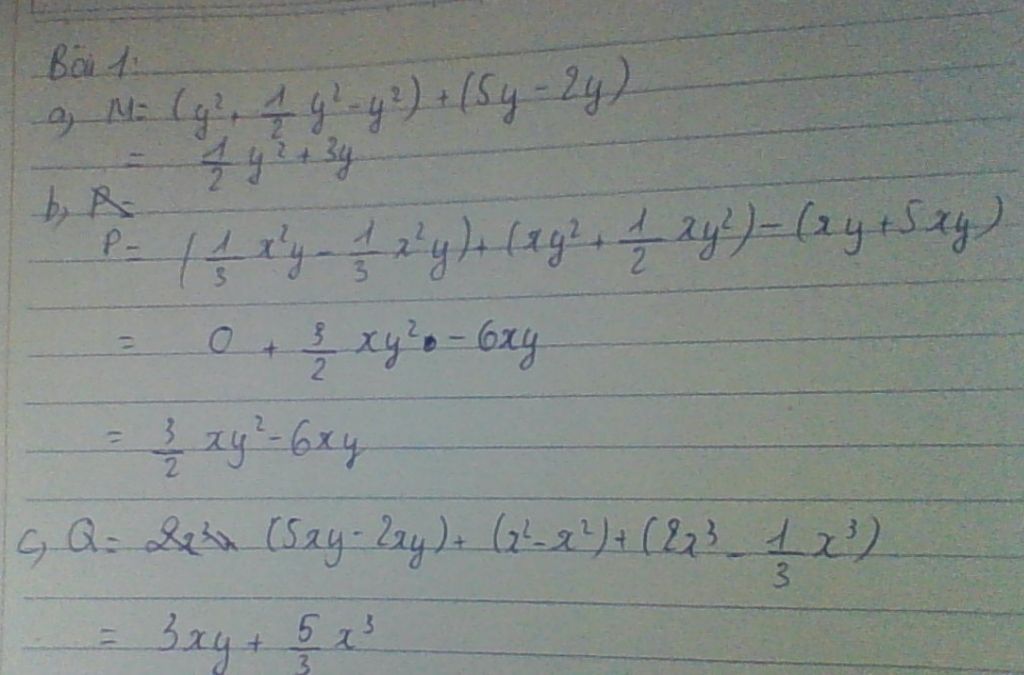 Bài 1:
a, M = (y² + 1/2 y² - y²) + (5y - 2y)
= 1/2 y² + 3y
b,
P = (1/3 x²y - 1/3 x²y) + (xy² + 1/2 xy²) - (xy + 5xy)
= 0 + 3/2 xy² - 6xy
= 3/2 xy² - 6xy
c, Q = (5xy - 2xy) + (x² - x²) + (2x³ - 1/3 x³)
= 3xy + 5/3 x³